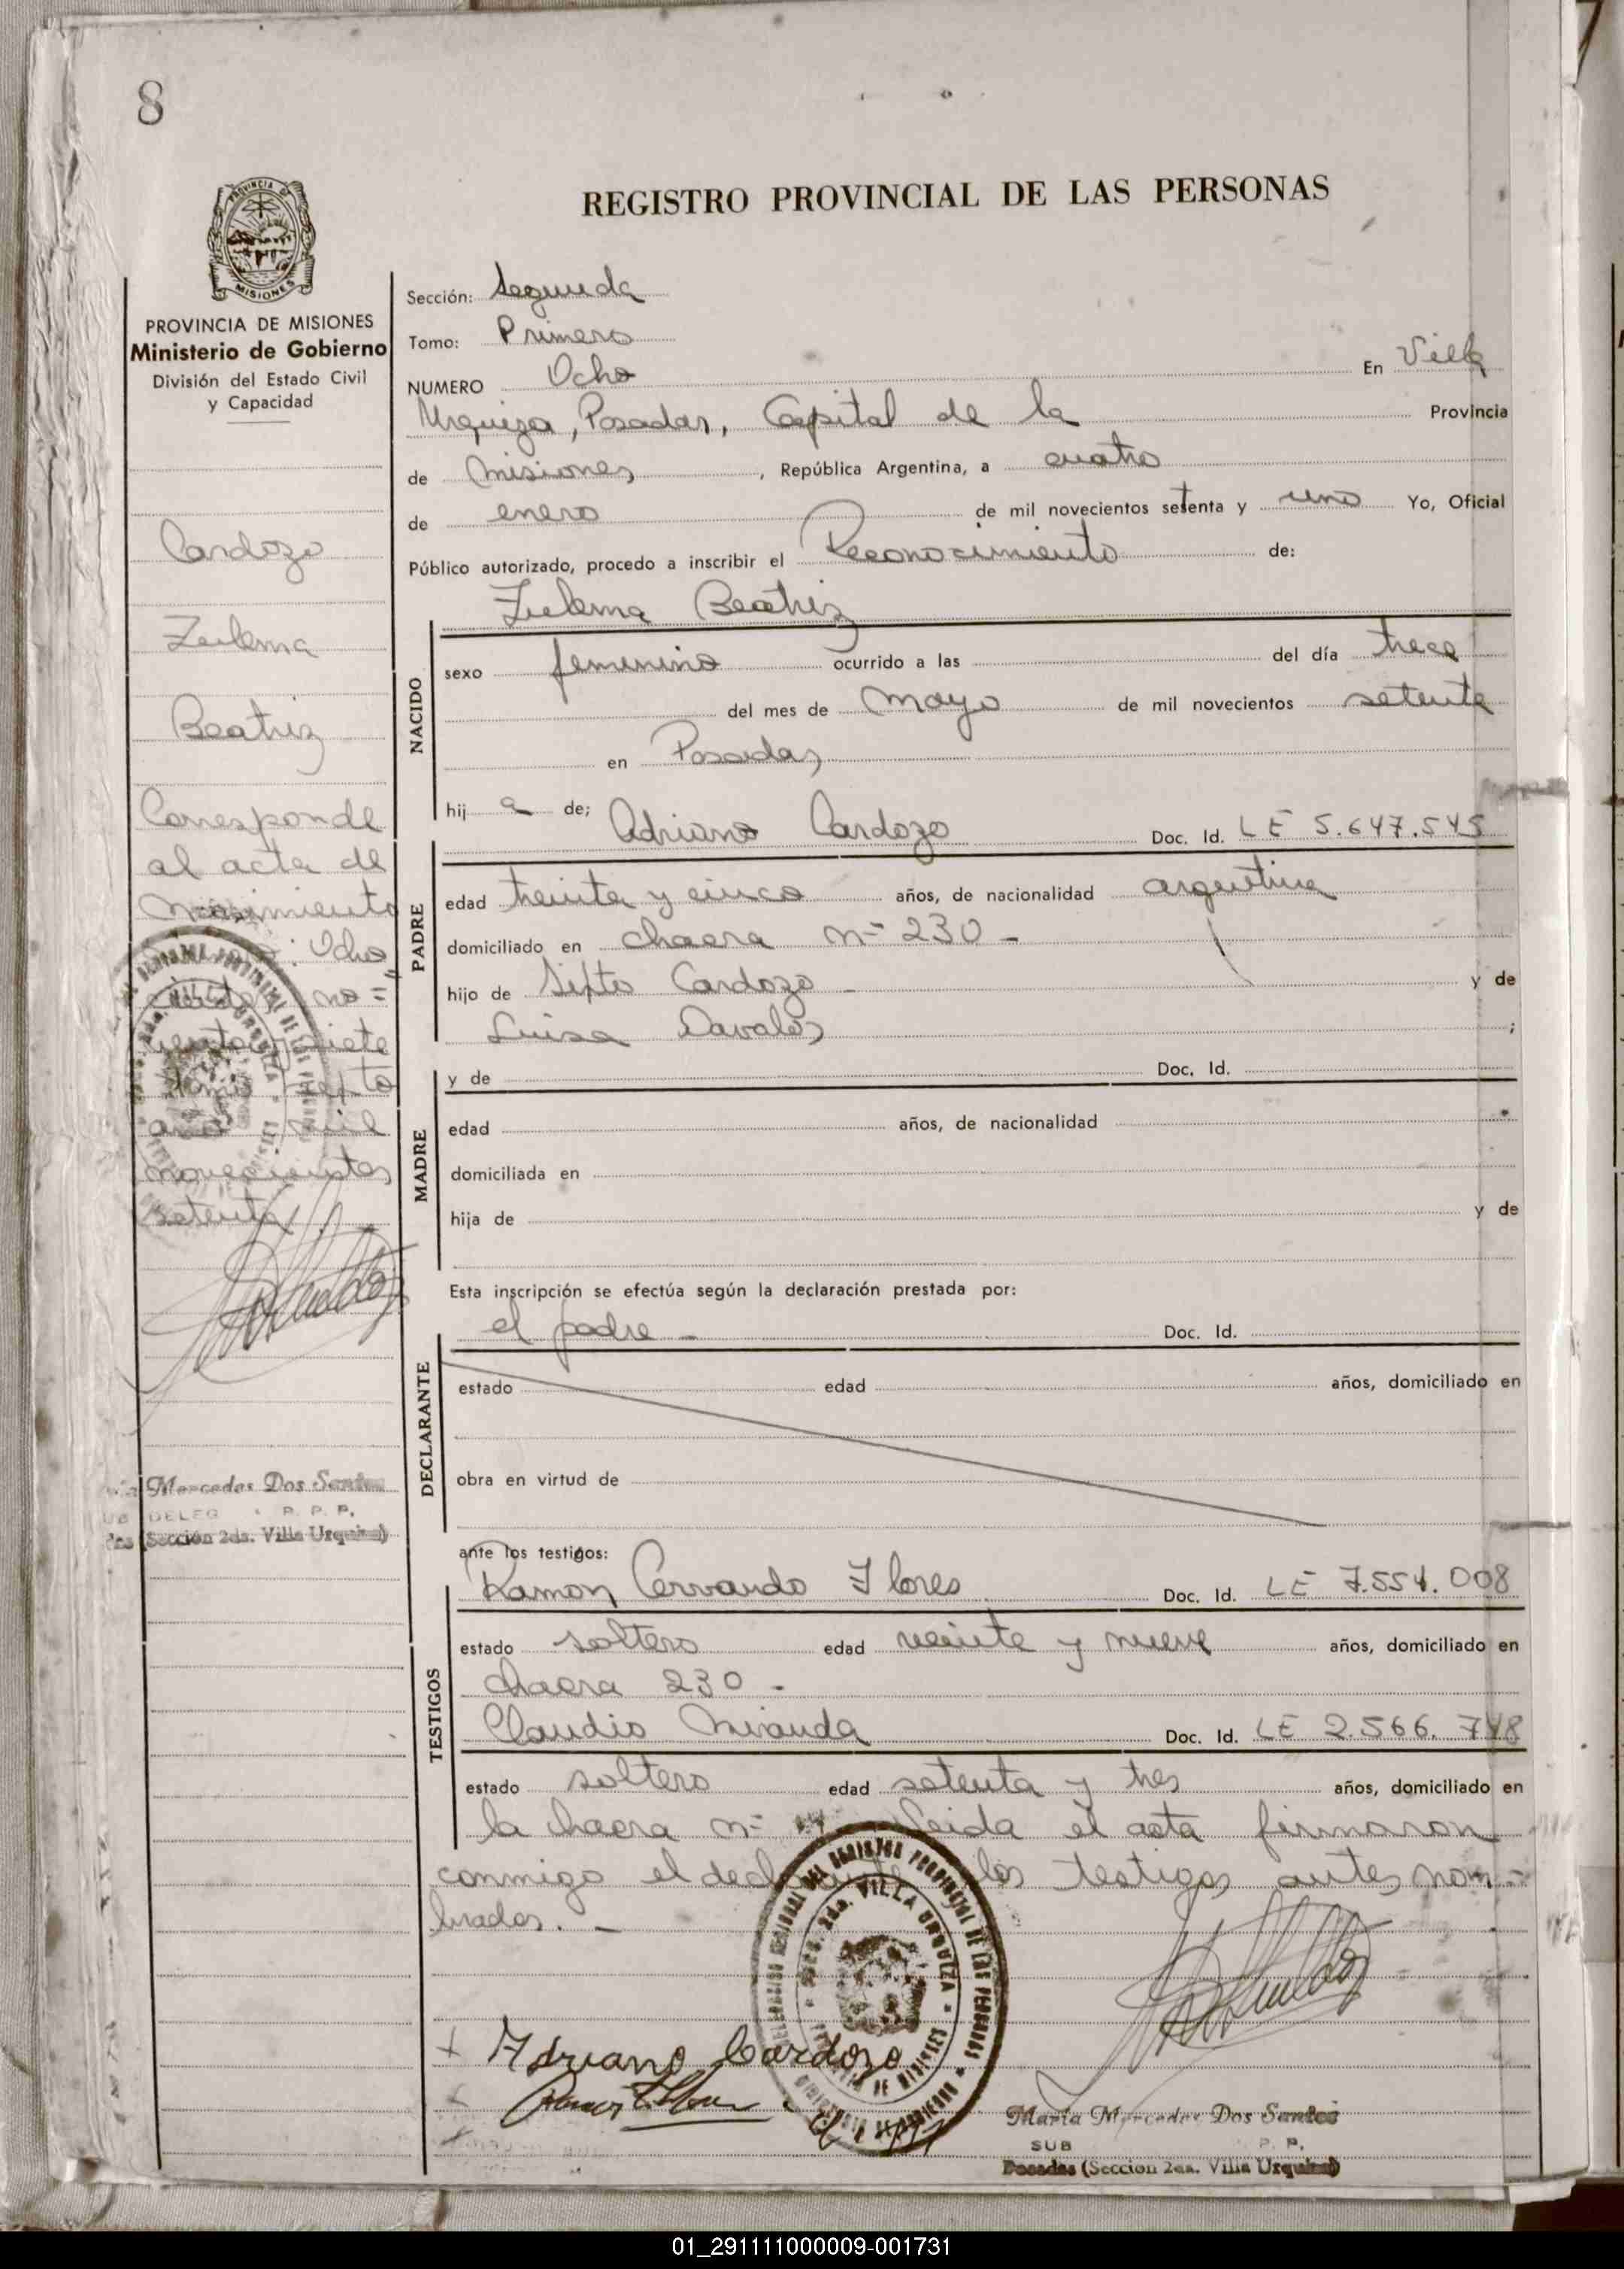 8
REGISTRO PROVINCIAL DE LAS PERSONAS
PROVINCIA DE
MISIONES
PROVINCIA DE MISIONES
Ministerio de Gobierno
División del Estado Civil
y Capacidad
Cardozo
Zulema
Beatriz
Corresponde
al acta de
Nacimiento
: Ocho
no=
siete
tomo
año mil
novecientos
setenta
Mercedes Dos Santos
DELEG P. P. P.
(Sección 2da. Villa Urquiza)
Sección: Segunda
Tomo: Primero
NUMERO Ocho En Villa
Urquiza, Posadas, Capital de la Provincia
de Misiones, República Argentina, a cuatro
de enero de mil novecientos setenta y uno Yo, Oficial
Público autorizado, procedo a inscribir el Reconocimiento de:
Zulema Beatriz
NACIDO
sexo femenino ocurrido a las del día trece
del mes de Mayo de mil novecientos setenta
en Posadas
hij a de; Adriano Cardozo Doc. Id. LE 5.647.545
PADRE
edad treinta y cinco años, de nacionalidad argentina
domiciliado en chacra nº 230 -
hijo de Sixto Cardozo - y de
Luisa Davalos ;
y de Doc. Id.
MADRE
edad años, de nacionalidad
domiciliada en
hija de y de
Esta inscripción se efectúa según la declaración prestada por:
el padre - Doc. Id.
DECLARANTE
estado edad años, domiciliado en
obra en virtud de
ante los testigos:
Ramon Cervando Flores Doc. Id. LE 7.554.008
TESTIGOS
estado soltero edad veinte y nueve años, domiciliado en
chacra 230 -
Claudio Miranda Doc. Id. LE 2.566.748
estado soltero edad setenta y tres años, domiciliado en
la chacra nº Leida el acta firmaron
conmigo el los testigos antes nom=
brados. -
VILLA URQUIZA
x Adriano Cardozo
Maria Mercedes Dos Santos
SUB P. P.
Posadas (Seccion 2da. Villa Urquiza)
01_291111000009-001731